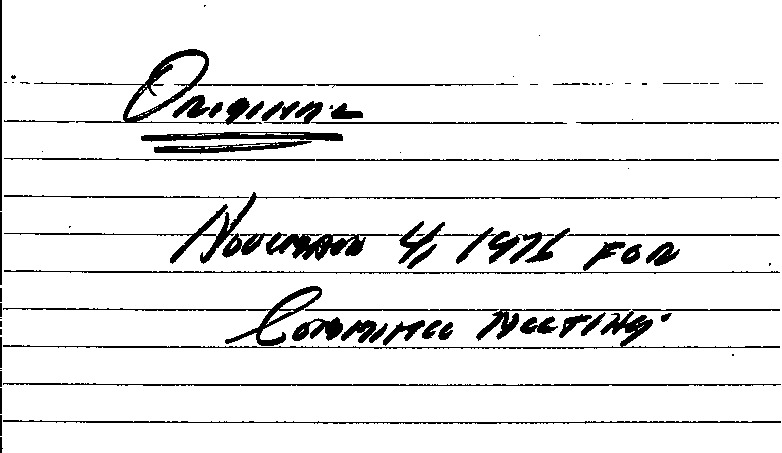 Original
November 4, 1976 for
Committee Meeting.